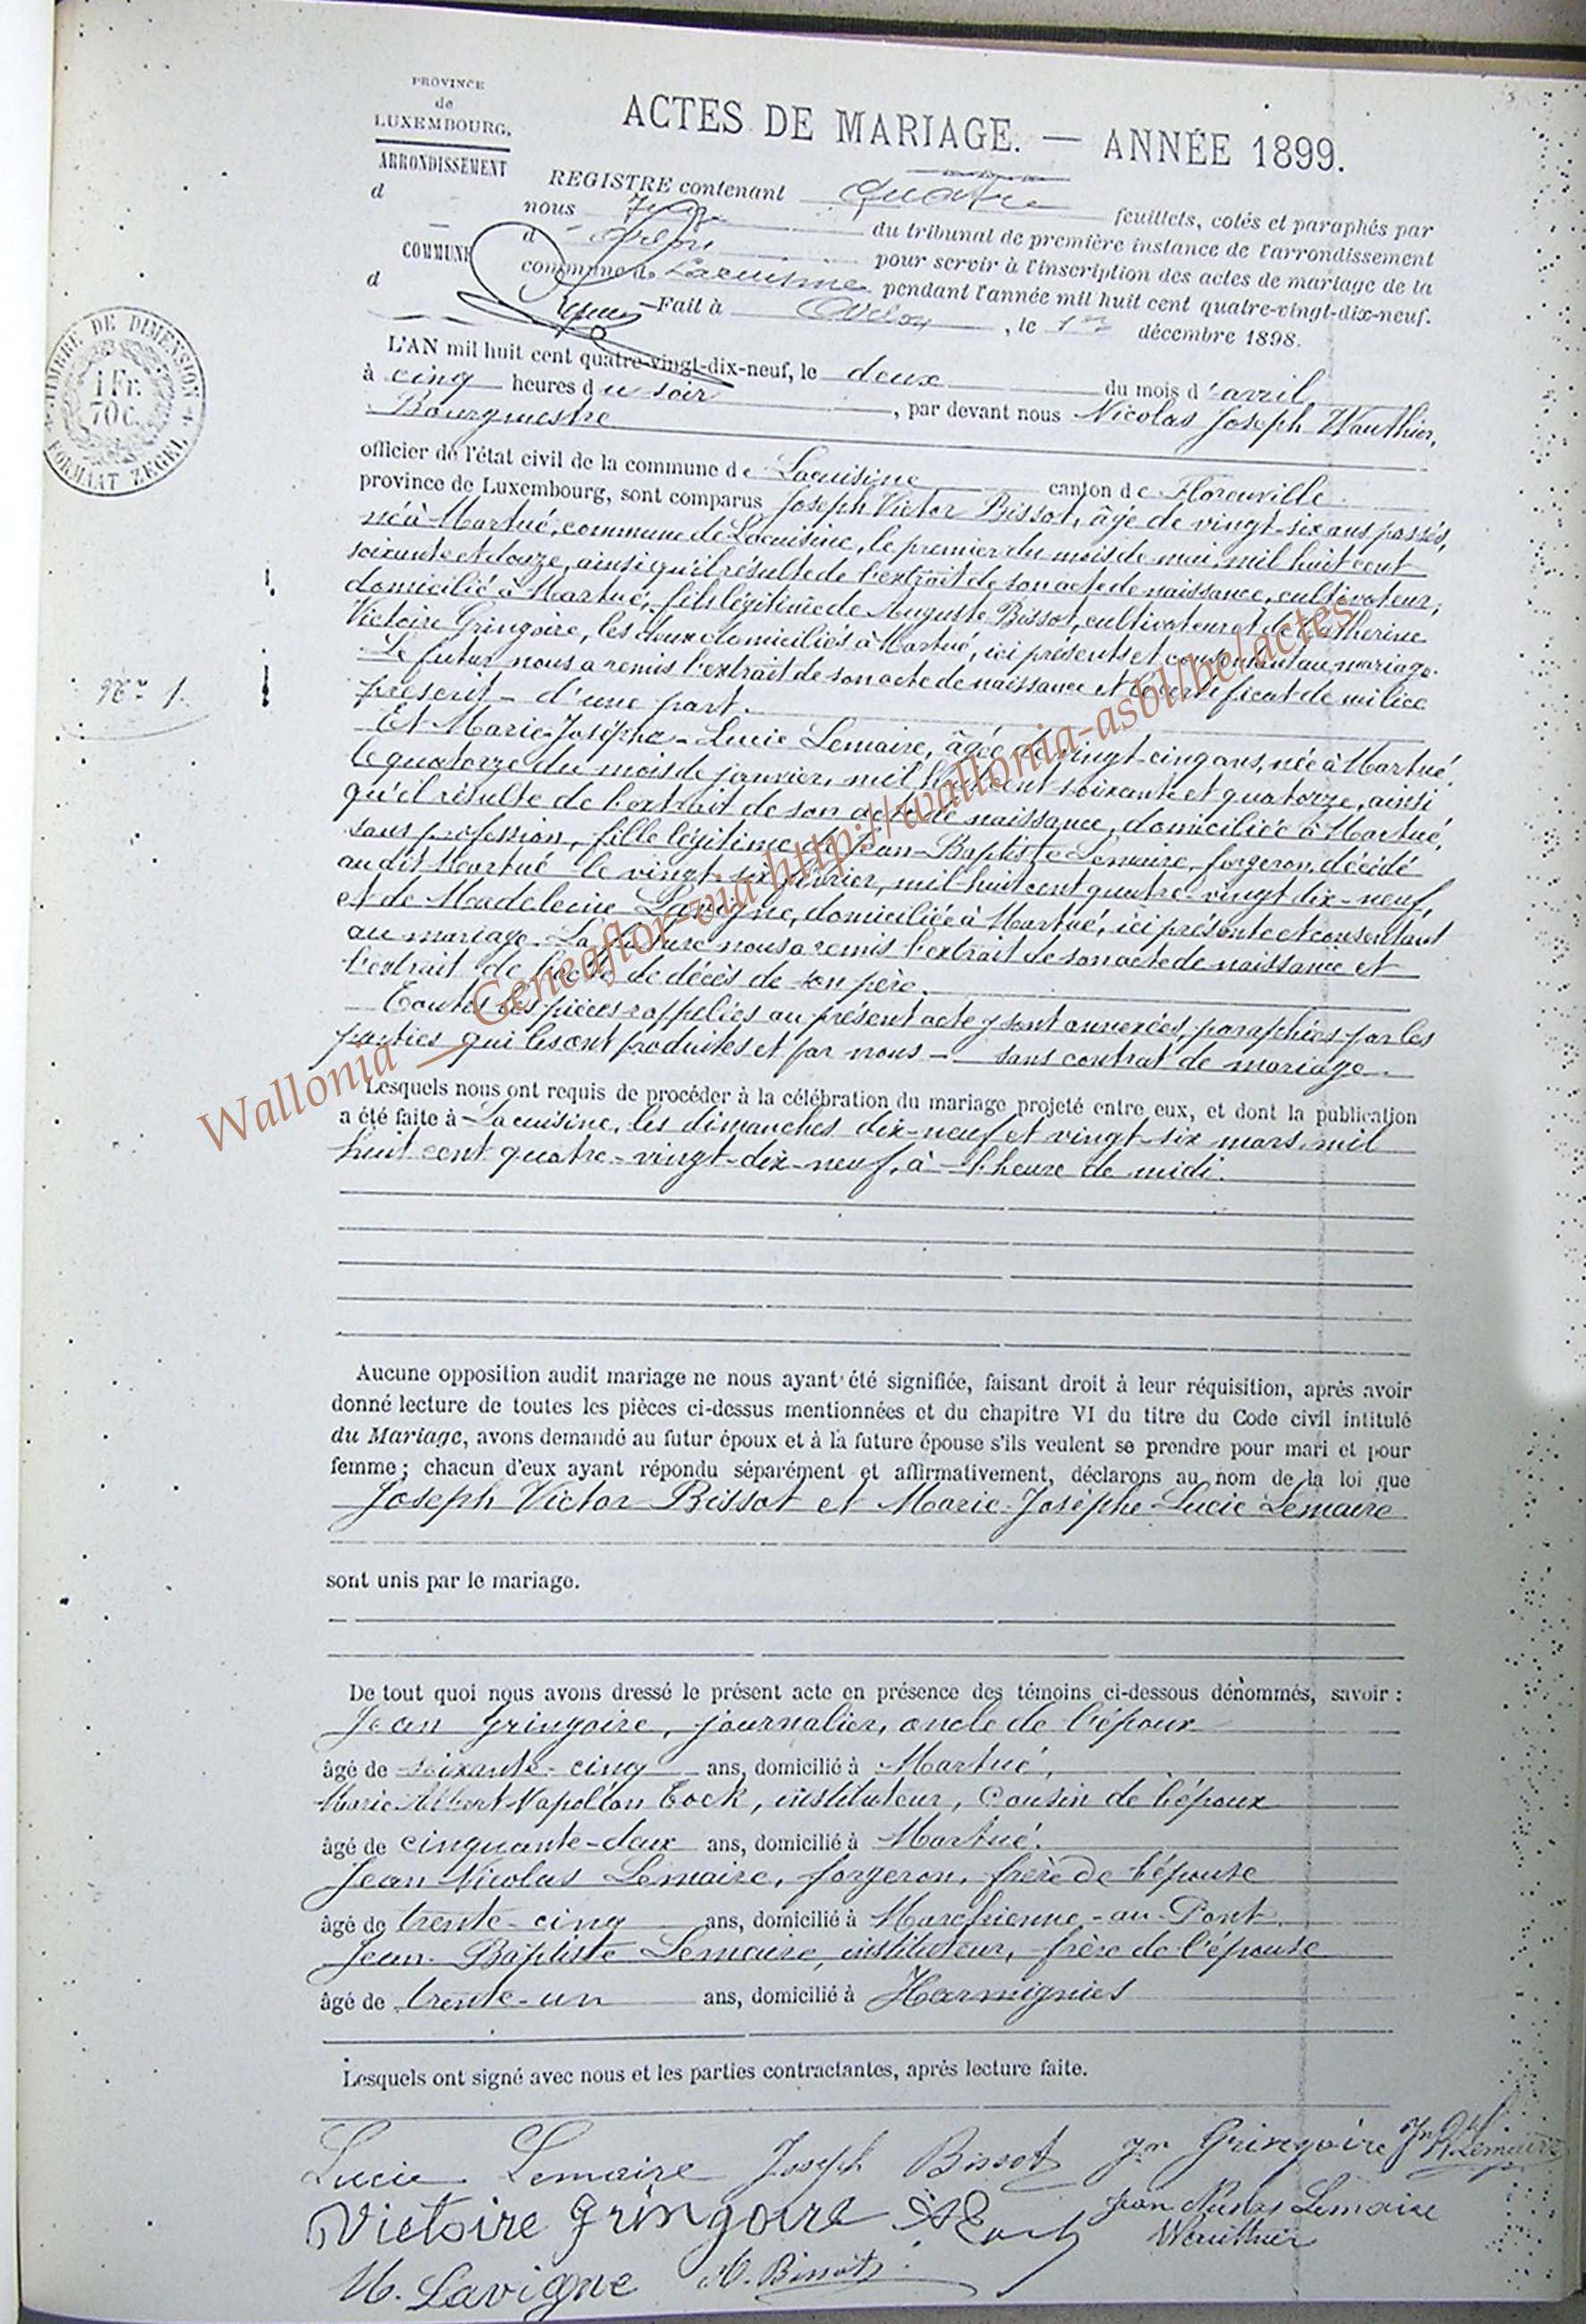 PROVINCE
de
LUXEMBOURG.
ARRONDISSEMENT
d
COMMUNE
d
ACTES DE MARIAGE. — ANNÉE 1899.
REGISTRE contenant quatre feuillets, cotés et paraphés par
nous Juge du tribunal de première instance de l'arrondissement
d'Arlon pour servir à l'inscription des actes de mariage de la
commune de Lacuisine pendant l'année mil huit cent quatre-vingt-dix-neuf.
Fait à Arlon, le 1er décembre 1898.
TIMBRE DE DIMENSION
1 Fr.
70 c.
FORMAAT ZEGEL
L'AN mil huit cent quatre-vingt-dix-neuf, le deux du mois d'avril
à cinq heures du soir, par devant nous Nicolas Joseph Wauthier,
Bourgmestre
officier de l'état civil de la commune de Lacuisine canton de Florenville
province de Luxembourg, sont comparus Joseph Victor Bissot, âgé de vingt-six ans passés,
né à Martué, commune de Lacuisine, le premier du mois de mai, mil huit cent
soixante et douze, ainsi qu'il résulte de l'extrait de son acte de naissance, cultivateur,
domicilié à Martué, fils légitime de Auguste Bissot, cultivateur et de Catherine
Victoire Gringoire, les deux domiciliés à Martué, ici présents et consentant au mariage.
Le futur nous a remis l'extrait de son acte de naissance et le certificat de milice
prescrit – d'une part.
N° 1.
Et Marie-Josèphe-Lucie Lemaire, âgée de vingt-cinq ans, née à Martué,
le quatorze du mois de janvier, mil huit cent soixante et quatorze, ainsi
qu'il résulte de l'extrait de son acte de naissance, domiciliée à Martué,
sans profession, fille légitime de Jean-Baptiste Lemaire, forgeron, décédé
audit Martué le vingt-six février, mil-huit cent quatre-vingt dix-neuf,
et de Madeleine Lavigne, domiciliée à Martué, ici présente et consentant
au mariage. La future nous a remis l'extrait de son acte de naissance et
l'extrait de l'acte de décès de son père.
Toutes les pièces rappelées au présent acte y sont annexées, paraphées par les
parties qui les ont produites et par nous – sans contrat de mariage.
Wallonia — Geneaflor-via http://wallonia-asbl/be/actes
Lesquels nous ont requis de procéder à la célébration du mariage projeté entre eux, et dont la publication
a été faite à Lacuisine, les dimanches dix-neuf et vingt-six mars, mil
huit cent quatre-vingt-dix-neuf, à l'heure de midi.
Aucune opposition audit mariage ne nous ayant été signifiée, faisant droit à leur réquisition, après avoir
donné lecture de toutes les pièces ci-dessus mentionnées et du chapitre VI du titre du Code civil intitulé
du Mariage, avons demandé au futur époux et à la future épouse s'ils veulent se prendre pour mari et pour
femme ; chacun d'eux ayant répondu séparément et affirmativement, déclarons au nom de la loi que
Joseph Victor Bissot et Marie-Josèphe-Lucie Lemaire
sont unis par le mariage.
De tout quoi nous avons dressé le présent acte en présence des témoins ci-dessous dénommés, savoir :
Jean Gringoire, journalier, oncle de l'époux
âgé de soixante-cinq ans, domicilié à Martué,
Marie Albert Napoléon Tock, instituteur, Cousin de l'époux
âgé de cinquante-deux ans, domicilié à Martué.
Jean Nicolas Lemaire, forgeron, frère de l'épouse
âgé de trente-cinq ans, domicilié à Marchienne-au-Pont.
Jean-Baptiste Lemaire, instituteur, frère de l'épouse
âgé de trente-un ans, domicilié à Harmignies
Lesquels ont signé avec nous et les parties contractantes, après lecture faite.
Lucie Lemaire Joseph Bissot Jn Gringoire Lemaire
Victoire Gringoire Tock Jean Nicolas Lemaire
Wauthier
M. Lavigne A. Bissot